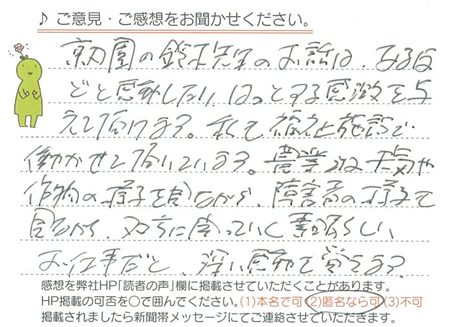 ♪ ご意見・ご感想をお聞かせください。
京丸園の鈴木先生のお話は、なるほ
どと感動したり、はっとする感激を与
えて頂けます。私も福祉施設で
働かせて頂いています。農業は天気や
作物の様子を見ながら、障害者の様子も
見ながら、双方に向っていく素晴らしい
お仕事だと、深い感動を覚えます。
感想を弊社HP「読者の声」欄に掲載させていただくことがあります。
HP掲載の可否を〇で囲んでください。(1)本名で可 (2)匿名なら可 (3)不可
掲載されましたら新聞帯メッセージにてご連絡させていただきます。